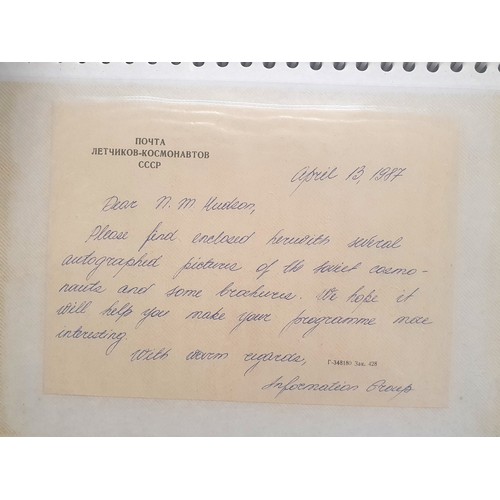 ПОЧТА
ЛЕТЧИКОВ-КОСМОНАВТОВ
СССР
April 13, 1987
Dear N. M. Hudson,
Please find enclosed herewith several
autographed pictures of the soviet cosmo-
nauts and some brochures. We hope it
will help you make your programme more
interesting
With warm regards,
Г-348180 Зак. 428
Information Group